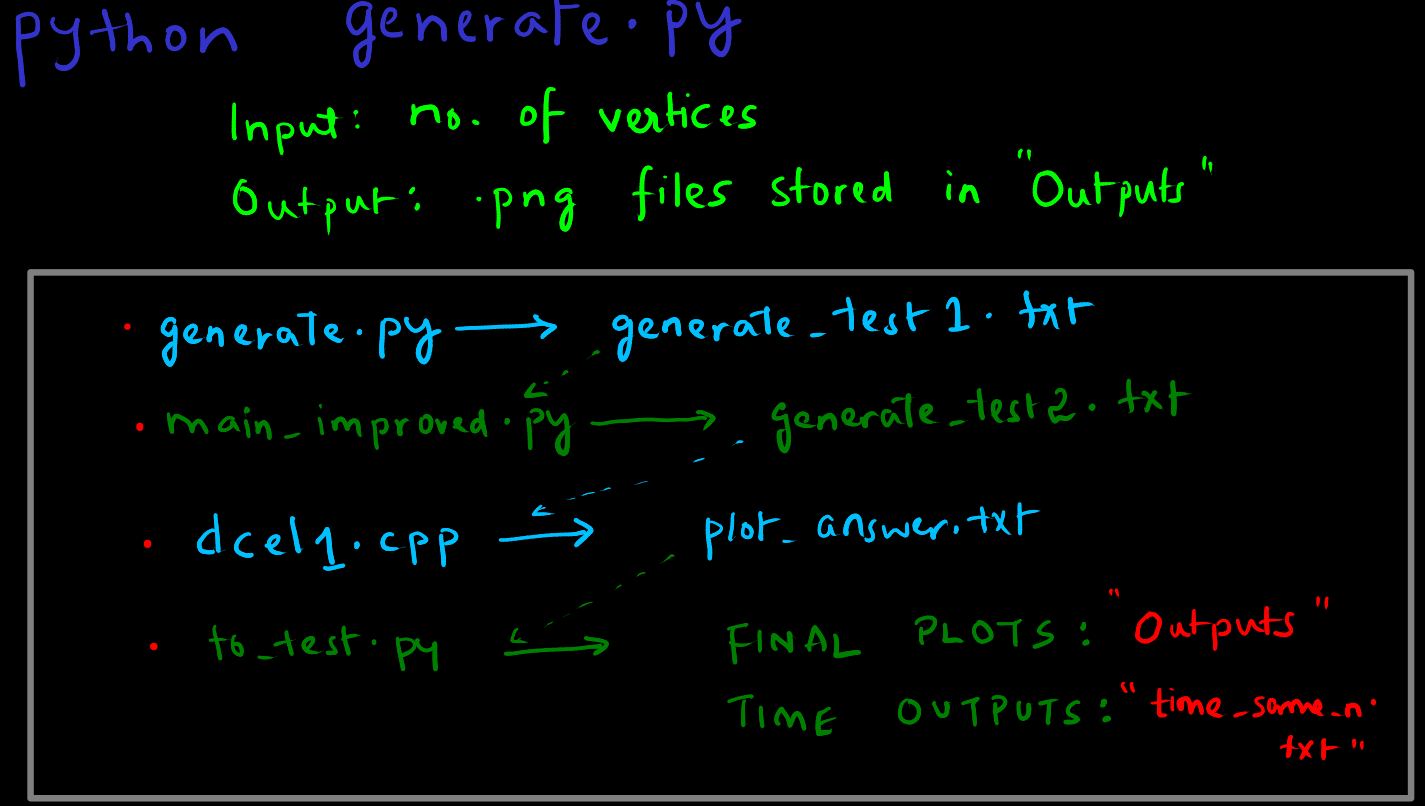 python generate.py
Input: no. of vertices
Output: .png files stored in "Outputs"
• generate.py → generate_test1.txt
• main_improved.py → generate_test2.txt
• dcel1.cpp → plot_answer.txt
• to_test.py → FINAL PLOTS: "Outputs"
TIME OUTPUTS: "time_same_n.
txt"